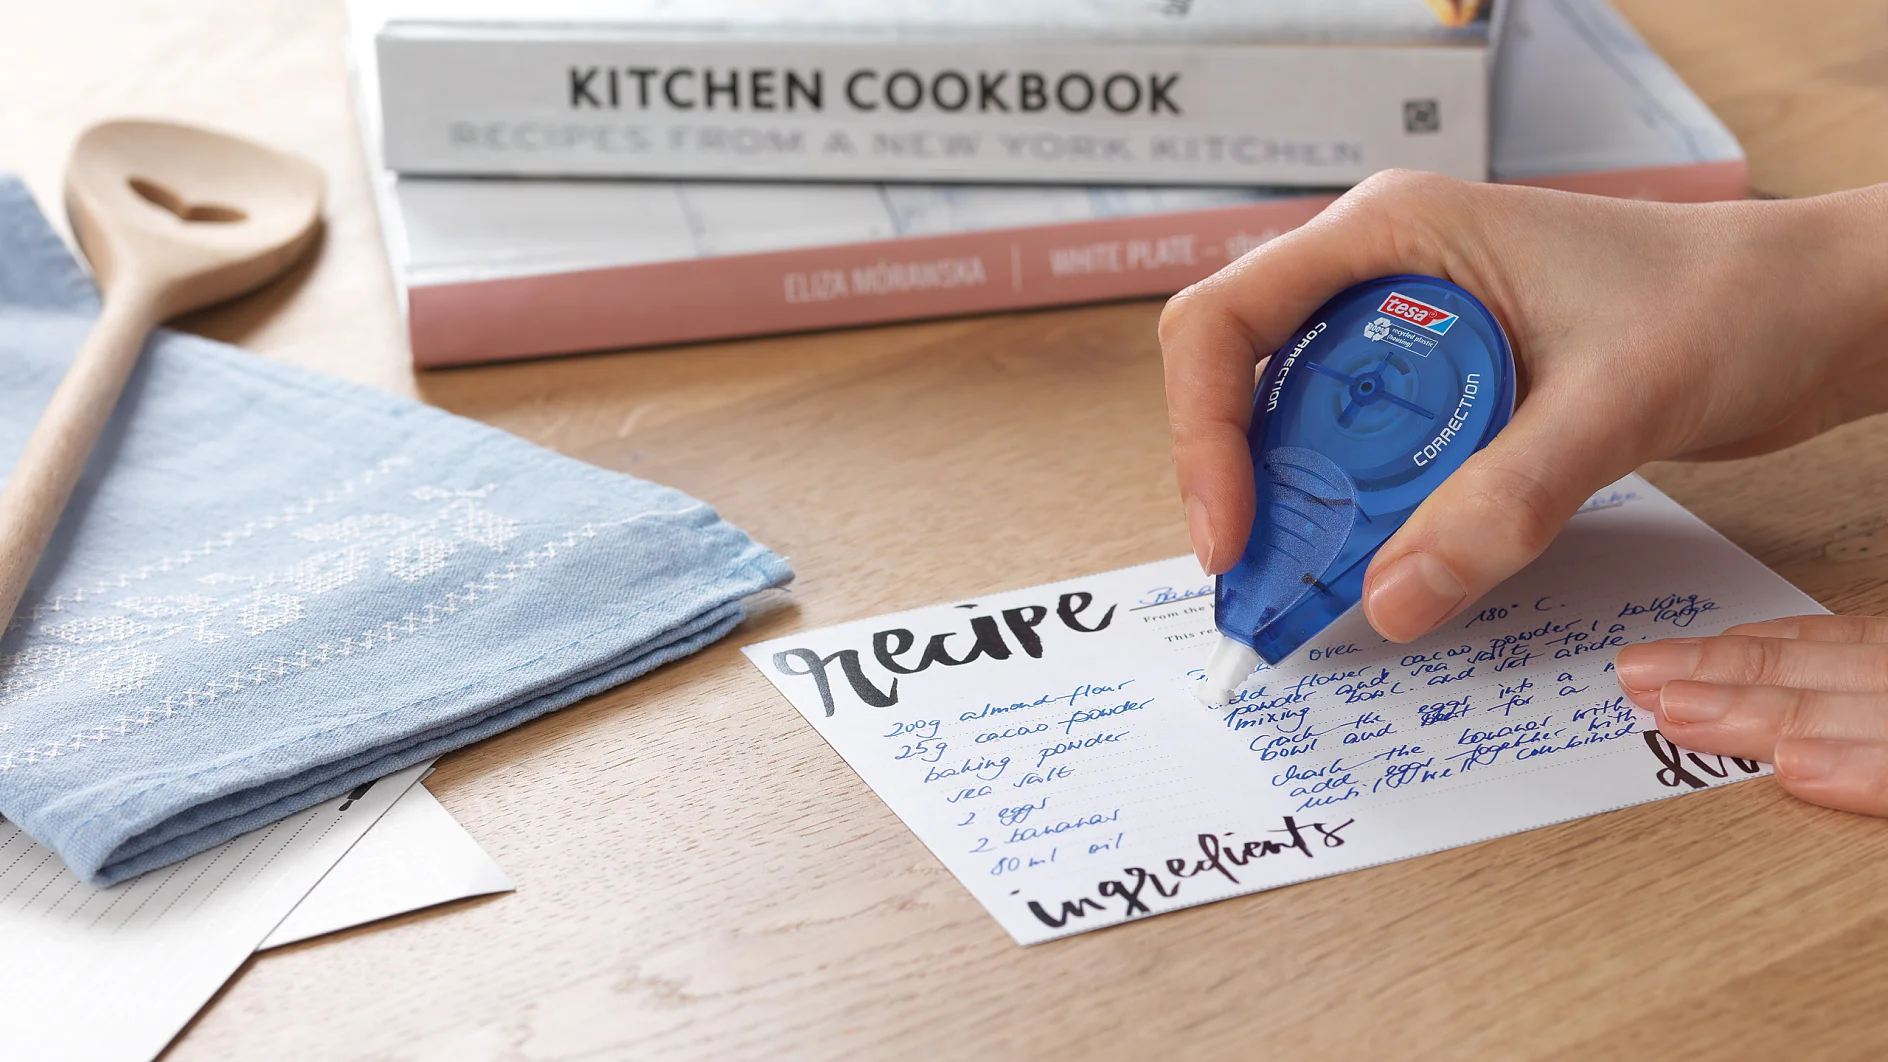 KITCHEN COOKBOOK
RECIPES FROM A NEW YORK KITCHEN
ELIZA MÓRAWSKA | WHITE PLATE –
tesa®
100% recycled plastic
(housing)
CORRECTION
CORRECTION
recipe
From the
This
200g almond flour
25g cacao powder
baking powder
sea salt
2 eggs
2 bananas
80ml oil
ingredients
oven 180° C.
flower, cacao powder, baking
powder and sea salt to a large
mixing bowl and set aside.
Crack the eggs into a
bowl and for a
the bananas with
add eggs together with
until well combined